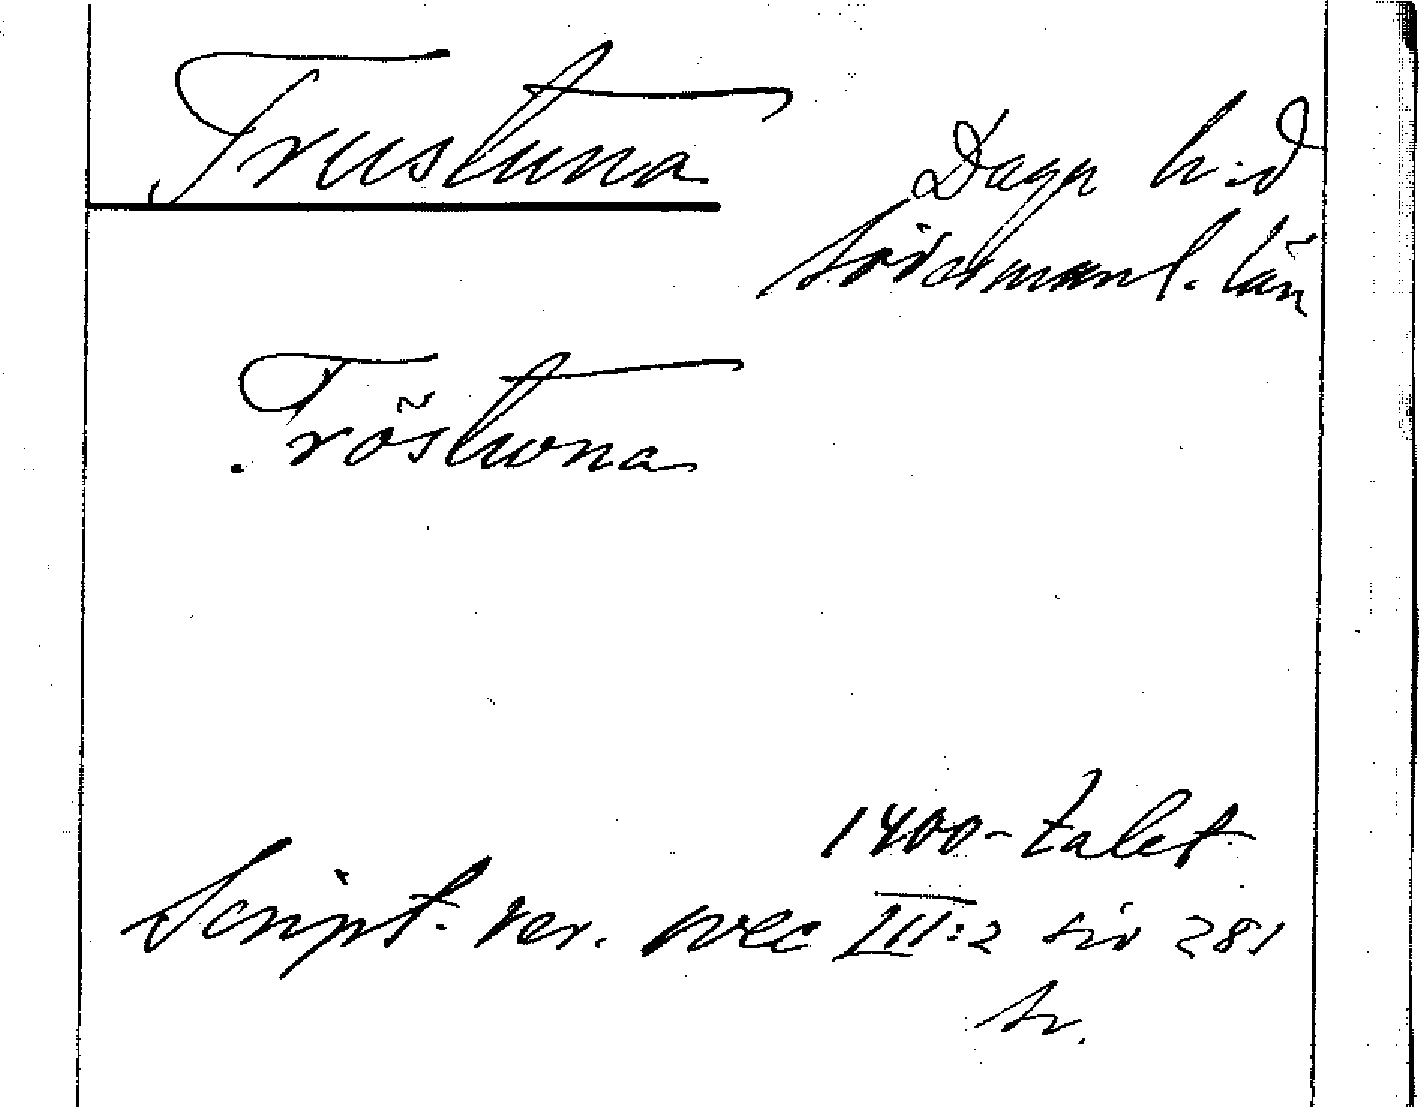 Trustuna
Daga h:d
Södermanl. län
Tröstwna
1400-talet
Script. rer. svec III:2 sid 281
tr.